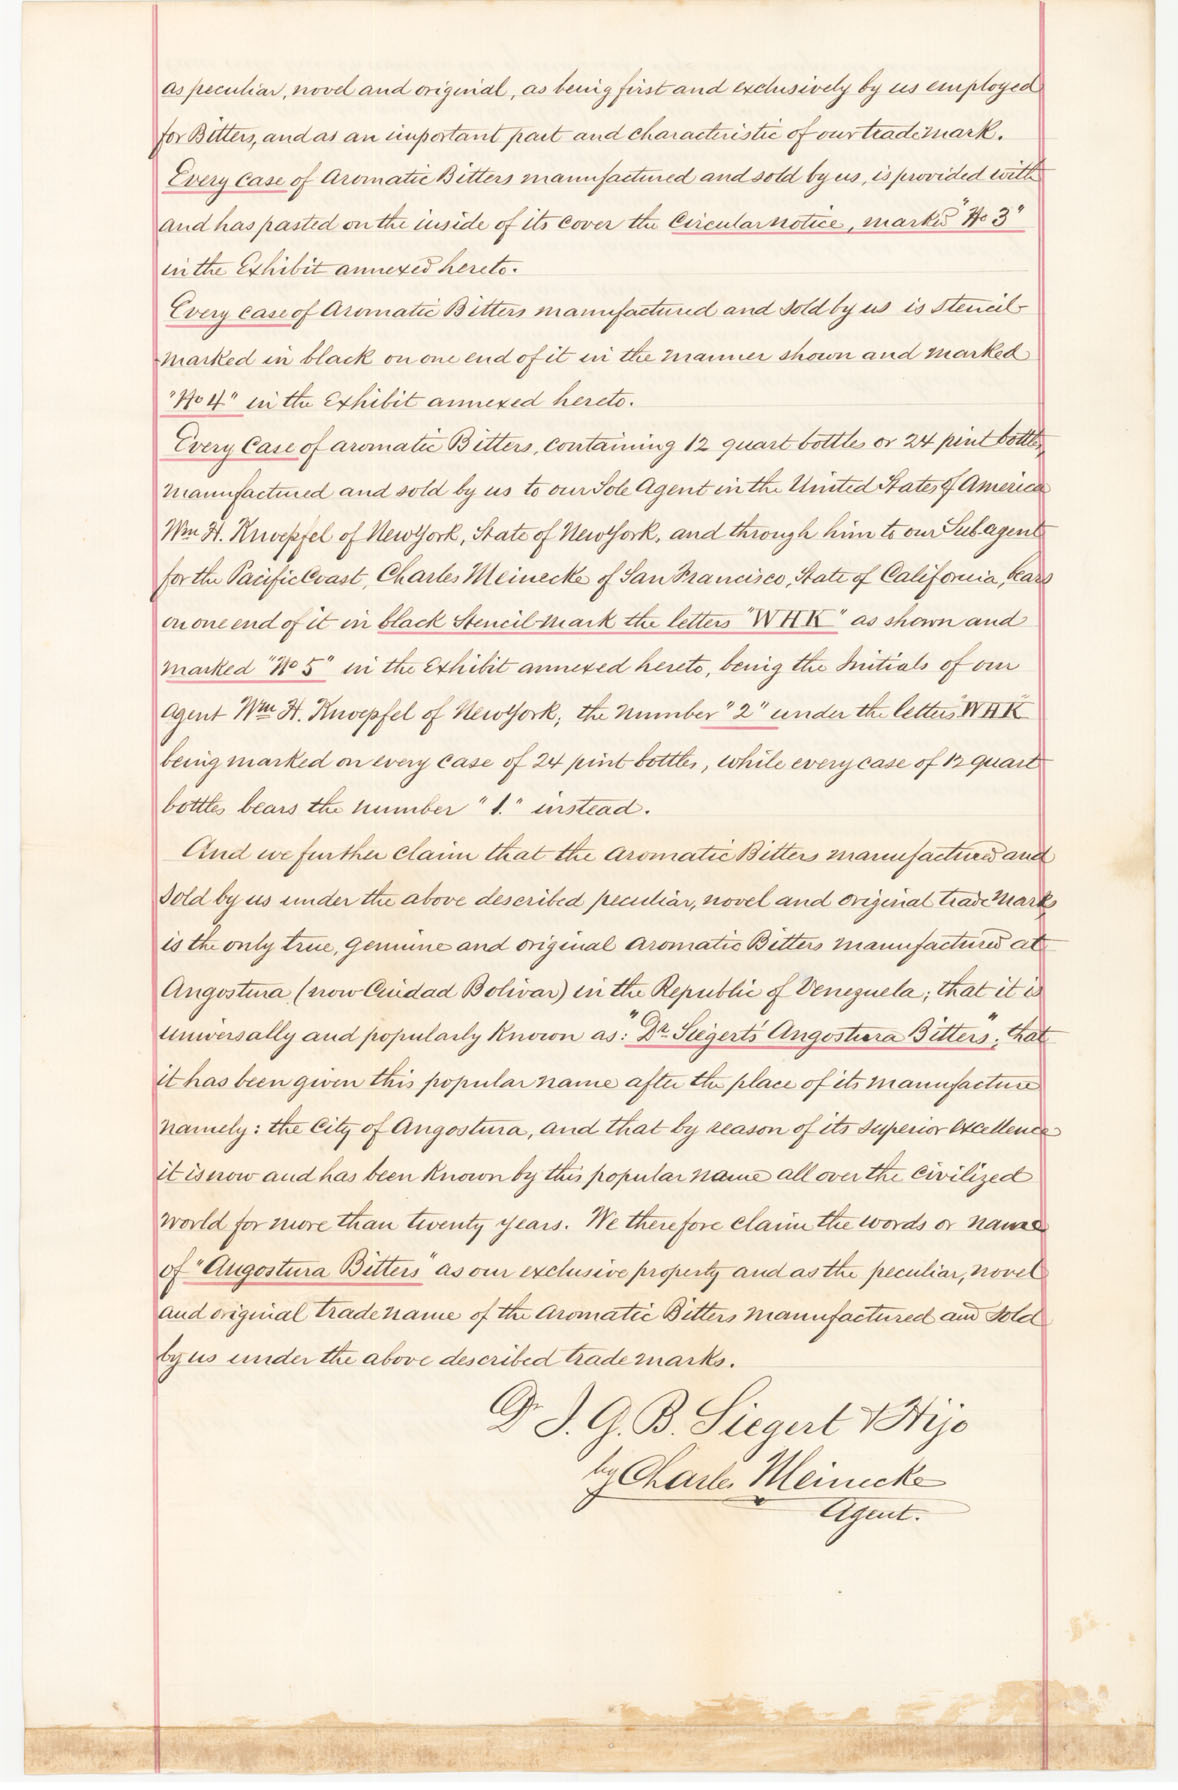 as peculiar, novel and original, as being first and exclusively by us employed
for Bitters, and as an important part and characteristic of our trade mark.
Every case of Aromatic Bitters manufactured and sold by us, is provided with
and has pasted on the inside of its cover the Circular notice, marked "No 3"
in the Exhibit annexed hereto.
Every case of Aromatic Bitters manufactured and sold by us is stencil-
marked in black on one end of it in the manner shown and marked
"No 4" in the Exhibit annexed hereto.
Every Case of aromatic Bitters, containing 12 quart bottles or 24 pint bottles,
manufactured and sold by us to our Sole Agent in the United States of America
Wm H. Knoepfel of New York, State of New York, and through him to our Subagent
for the Pacific Coast, Charles Meinecke of San Francisco, State of California, bears
on one end of it in black Stencil-mark the letters "WHK" as shown and
marked "No 5" in the Exhibit annexed hereto, being the Initials of our
Agent Wm H. Knoepfel of New York; the number "2" under the letters "WHK"
being marked on every case of 24 pint bottles, while every case of 12 quart
bottles bears the number "1." instead.
And we further claim that the Aromatic Bitters manufactured and
sold by us under the above described peculiar, novel and original trade marks
is the only true, genuine and original Aromatic Bitters manufactured at
Angostura (now Ciudad Bolivar) in the Republic of Venezuela; that it is
universally and popularly known as: "Dr. Siegert's Angostura Bitters"; that
it has been given this popular name after the place of its manufacture
namely: the City of Angostura, and that by reason of its superior excellence
it is now and has been known by this popular name all over the civilized
world for more than twenty years. We therefore claim the words or name
of "Angostura Bitters" as our exclusive property and as the peculiar, novel
and original trade name of the Aromatic Bitters manufactured and sold
by us under the above described trade marks.
Dr J. G. B. Siegert & Hijo
by Charles Meinecke
Agent.